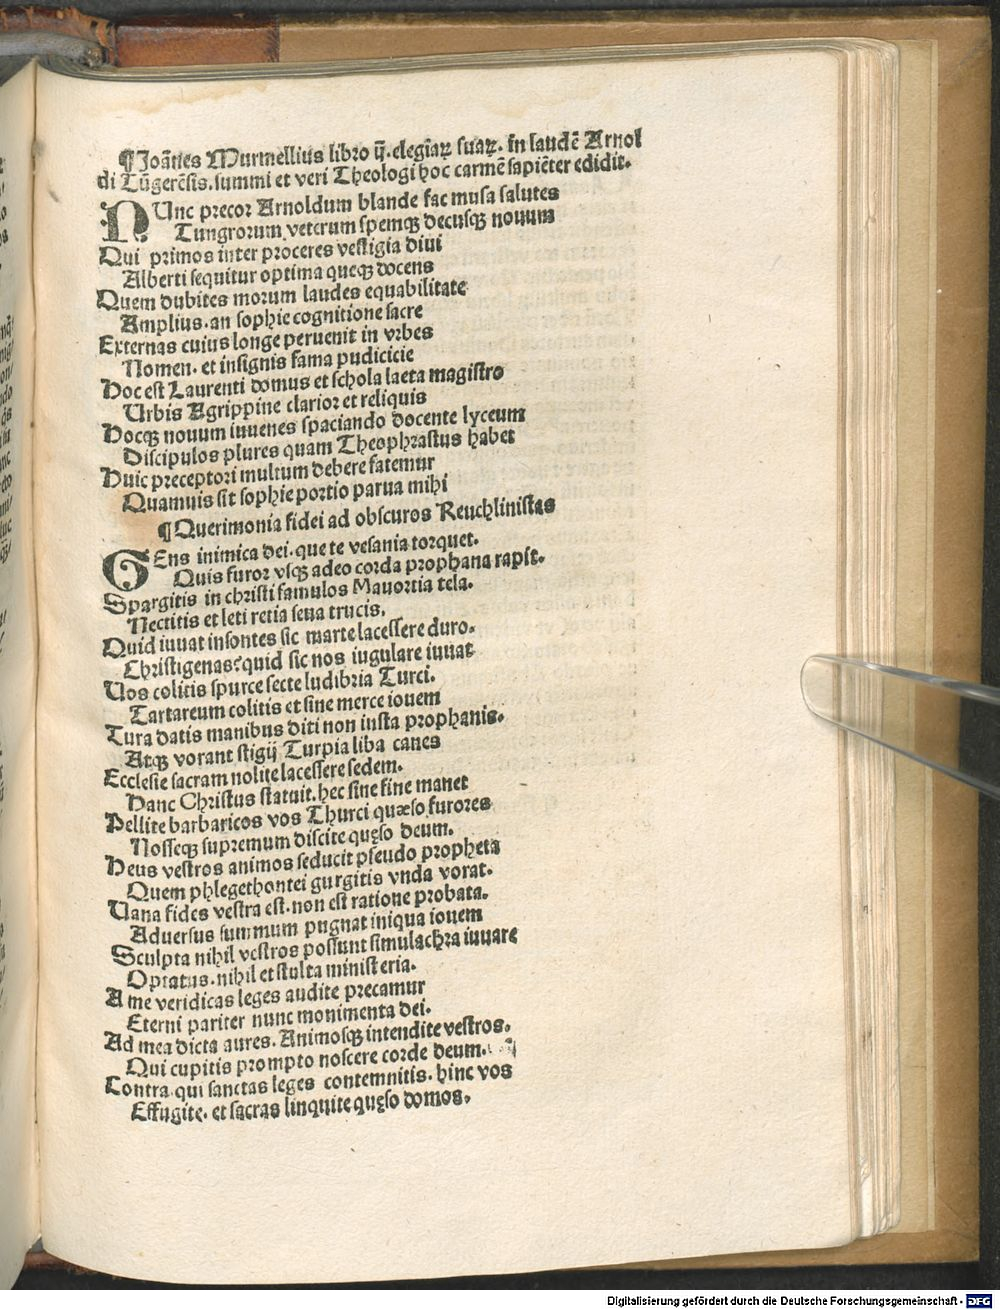 ¶Joāñes Murmellius libro ij. elegiaꝝ suaꝝ. in laudē Arnol
di Tūgerēsis. summi et veri Theologi hoc carmē sapiēter edidit.
NUnc precor Arnoldum blande fac musa salutes
Tungrorum veterum spemqꝫ decusqꝫ nouum
Qui primos inter proceres vestigia diui
Alberti sequitur optima queqꝫ docens
Quem dubites morum laudes equabilitate
Amplius. an sophie cognitione sacre
Externas cuius longe peruenit in vrbes
Nomen. et insignis fama pudicicie
Hoc est Laurenti domus et schola laeta magistro
Urbis Agrippine clarior et reliquis
Hocqꝫ nouum iuuenes spaciando docente lyceum
Discipulos plures quam Theophrastus habet
Huic preceptori multum debere fatemur
Quamuis sit sophie portio parua mihi
¶Querimonia fidei ad obscuros Reuchlinistas
GEns inimica dei. que te vesania torquet.
Quis furor vsqꝫ adeo corda prophana rapit.
Spargitis in christi famulos Mauortia tela.
Nectitis et leti retia seua trucis.
Quid iuuat insontes sic marte lacessere duro.
Christigenas? quid sic nos iugulare iuuat
Uos colitis spurce secte ludibria Turci.
Tartareum colitis et sine merce iouem
Tura datis manibus diti non iusta prophanis.
Atqꝫ vorant stigij Turpia liba canes
Ecclesie sacram nolite lacessere sedem.
Hanc Christus statuit. hec sine fine manet
Pellite barbaricos vos Thurci quæso furores
Nosseqꝫ supremum discite quęso deum.
Heus vestros animos seducit pseudo propheta
Quem phlegethontei gurgitis vnda vorat.
Uana fides vestra est. non est ratione probata.
Aduersus summum pugnat iniqua iouem
Sculpta nihil vestros possunt simulachra iuuare
Optatus. nihil et stulta ministeria.
A me veridicas leges audite precamur
Eterni pariter nunc monimenta dei.
Ad mea dicta aures. Animosqꝫ intendite vestros.
Qui cupitis prompto noscere corde deum.
Contra qui sanctas leges contemnitis. hinc vos
Effugite. et sacras linquite quęso domos.
Digitalisierung gefördert durch die Deutsche Forschungsgemeinschaft - DFG